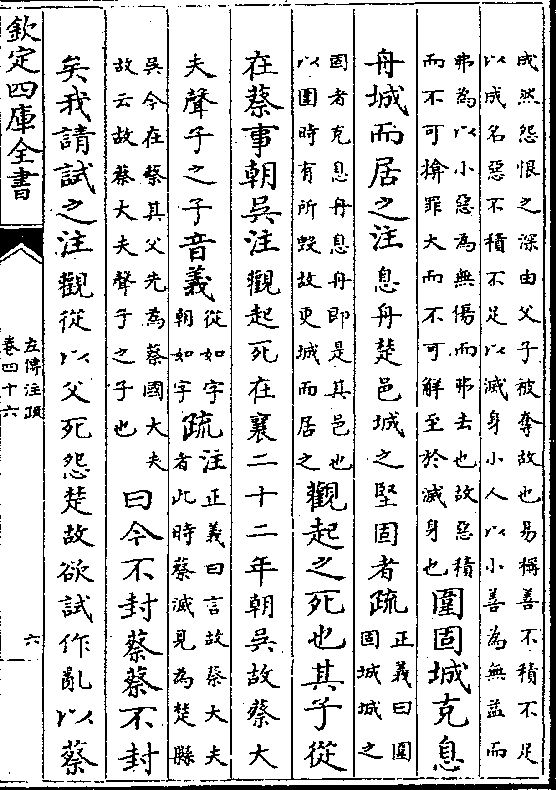 成然怨恨之深由父子被奪故也易稱善不積不足
以成名惡不積不足以滅身小人以小善為無益而
弗為以小惡為無傷而弗去也故惡積
而不可揜罪大而不可解至於滅身也圍固城克息
舟城而居之注息舟楚邑城之堅固者疏正義曰圍固城城之
固者克息舟息舟即是其邑也
以圍時有所毀故更城而居之觀起之死也其子從
在蔡事朝吳注觀起死在襄二十二年朝吳故蔡大
夫聲子之子音義從如字朝如字疏注正義曰言故蔡大夫者此時蔡滅見為楚縣
吳今在蔡其父先為蔡國大夫
故云故蔡大夫聲子之子也曰今不封蔡蔡不封
矣我請試之注觀從以父死怨楚故欲試作亂以蔡
欽定四庫全書
左傳注疏
卷四十六
六